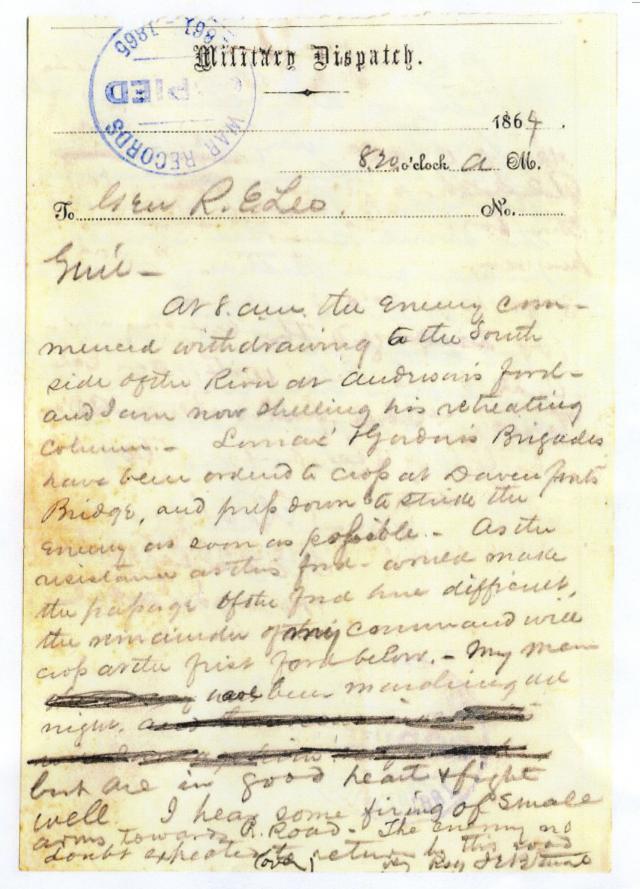 WAR RECORDS
1861 1865
COPIED
Military Dispatch.
1864.
8.20 o'clock a M.
To Gen R. E Lee. No.
Gen'l —
At 8. am. the Enemy com-
menced withdrawing to the South
side of the River at Anderson's ford -
and I am now shelling his retreating
column. - Lomax' & Gordon's Brigades
have been ordered to cross at Davenports
Bridge, and press down to strike the
Enemy as soon as possible. - As the
resistance at this ford - would make
the passage of the ford here difficult,
the remainder of my command will
cross at the first ford below. - My men
have been marching all
night.
but are in good heart & fight
well. I hear some firing of small
arms towards R. Road - The enemy no
doubt expected to return by this road
(over) Very Resp J E B Stuart